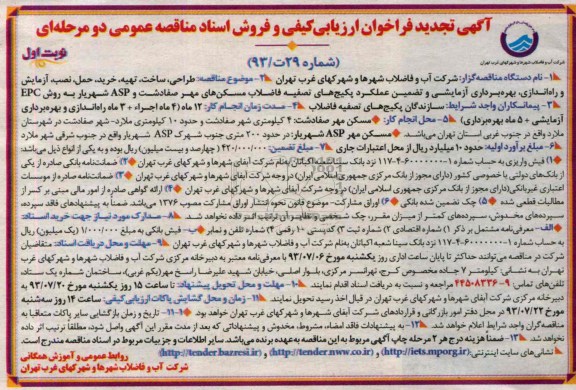 آگهی تجدید فراخوان ارزیابی کیفی و فروش اسناد مناقصه عمومی دو مرحله‌ای
(شماره ۲۹ت/۹۳)
نوبت اول
شرکت آب و فاضلاب شهرها و شهرکهای غرب تهران
۱- نام دستگاه مناقصه‌گزار: شرکت آب و فاضلاب شهرها و شهرکهای غرب تهران ۲- موضوع مناقصه: طراحی، ساخت، تهیه، خرید، حمل، نصب، آزمایش
و راه‌اندازی، بهره‌برداری آزمایشی و تضمین عملکرد پکیج‌های تصفیه فاضلاب مسکن‌های مهر صفادشت و ASP شهریار به روش EPC
۳- پیمانکاران واجد شرایط: سازندگان پکیج‌های تصفیه فاضلاب ۴- مدت زمان انجام کار: ۱۲ ماه (۴ ماه اجراء + ۳ ماه راه‌اندازی و بهره‌برداری
آزمایشی + ۵ ماه بهره‌برداری) ۵- محل انجام کار: مسکن مهر صفادشت: ۴ کیلومتری شهر صفادشت و حدود ۱۰ کیلومتری ملارد- شهر صفادشت در شهرستان
ملارد واقع در جنوب غربی استان تهران می‌باشد. مسکن مهر ASP شهریار: در حدود ۲۰۰ متری جنوب شهرک ASP شهریار واقع در جنوب شرقی شهر ملارد
۶- مبلغ برآورد اولیه: حدود ۱۰ میلیارد ریال از محل اعتبارات جاری ۷- مبلغ تضمین: ۴۲۰/۰۰۰/۰۰۰ (چهارصد و بیست میلیون) ریال بوده و به یکی از انواع ذیل می‌باشد:
۱) فیش واریزی به حساب شماره ۱-۶۰۰۰۰۰۰-۴-۱۱۷ نزد بانک سینا شعبه اکباتان بنام شرکت آبفای شهرها و شهرکهای غرب تهران ۲) ضمانت‌نامه بانکی صادره از یکی
از بانک‌های دولتی یا خصوصی کشور (دارای مجوز از بانک مرکزی جمهوری اسلامی ایران) در وجه شرکت آبفای شهرها و شهرکهای غرب تهران ۳) ضمانت‌نامه صادره از موسسات
اعتباری غیربانکی (دارای مجوز از بانک مرکزی جمهوری اسلامی ایران) در وجه شرکت آبفای شهرها و شهرکهای غرب تهران ۴) ارائه گواهی صادره از امور مالی مبنی بر کسر از
مطالبات قطعی شده ۵) چک تضمین شده بانکی ۶) اوراق مشارکت- موضوع قانون نحوه انتشار اوراق مشارکت مصوب ۱۳۷۶ می‌باشد. ضمناً به پیشنهادهای فاقد سپرده،
سپرده‌های مخدوش، سپرده‌های کمتر از میزان مقرر، چک شخصی و نظایر آن ترتیب اثر داده نخواهد شد. ۸- مدارک مورد نیاز جهت خرید اسناد:
الف- معرفی‌نامه مشتمل بر ذکر ۱) شماره اقتصادی ۲) شماره ثبت ۳) کدپستی ۱۰ رقمی ۴) شماره تلفن و نمابر ب- فیش بانکی به مبلغ ۱/۰۰۰/۰۰۰ (یک میلیون) ریال
به حساب شماره ۱-۶۰۰۰۰۰۰-۴-۱۱۷ نزد بانک سینا شعبه اکباتان به‌نام شرکت آب و فاضلاب شهرها و شهرکهای غرب تهران ۹- مهلت و محل دریافت اسناد: متقاضیان
شرکت در مناقصه می توانند حداکثر تا پایان ساعت اداری روز یکشنبه مورخ ۹۳/۰۷/۰۶ با معرفی‌نامه معتبر به دبیرخانه مرکزی شرکت آب و فاضلاب شهرها و شهرکهای غرب
تهران به نشانی: کیلومتر ۷ جاده مخصوص کرج، تهرانسر مرکزی، بلوار اصلی، خیابان شهید علیرضا راسخ مهر (یکم غربی)، ساختمان شماره یک ستاد،
تلفن‌های تماس: ۹-۴۴۵۰۸۳۳۶ مراجعه و نسبت به دریافت اسناد اقدام نمایند. ۱۰- مهلت و محل تحویل پیشنهاد: تا ساعت ۱۵ روز یکشنبه مورخ ۹۳/۰۷/۲۰ به
دبیرخانه مرکزی شرکت آبفای شهرها و شهرکهای غرب تهران در قبال اخذ رسید تحویل نمایند. ۱۱- زمان و محل گشایش پاکات ارزیابی کیفی: ساعت ۱۴ روز سه‌شنبه
مورخ ۹۳/۰۷/۲۲ در محل دفتر امور بازرگانی و قراردادهای شرکت آبفای شهرها و شهرکهای غرب تهران خواهد بود ۱-۱۱- تاریخ و زمان بازگشایی سایر پاکات متعاقبا به
مناقصه‌گران واجد شرایط اعلام خواهد شد. ۱۲- به پیشنهادات فاقد امضاء، مشروط، مخدوش و پیشنهاداتی که بعد از مدت مقرر این آگهی واصل شود، مطلقا ترتیب اثر داده
نخواهد شد. ۱۳- ضمناً هزینه درج هر ۲ مرحله چاپ آگهی مربوط به این مناقصه به‌عهده برنده می‌باشد. سایر اطلاعات و جزییات مربوط در اسناد مناقصه مندرج است.
نشانی‌های سایت اینترنتی: (http://iets.mporg.ir) و (http://tender.nww.co.ir) و (http://tender.bazresi.ir)
روابط عمومی و آموزش همگانی
شرکت آب و فاضلاب شهرها و شهرکهای غرب تهران